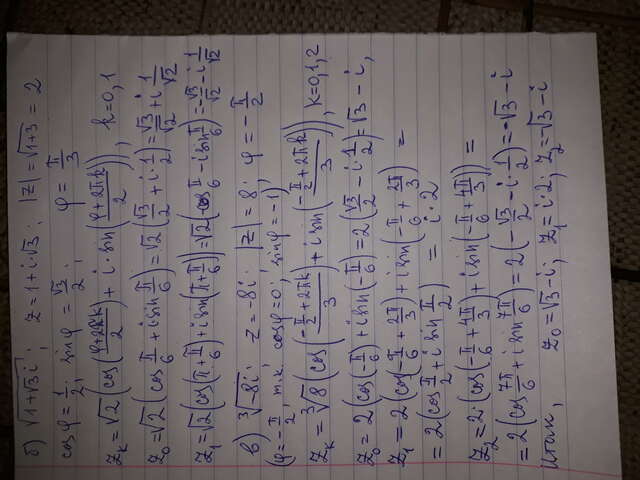 б) √(1+√3i); z=1+i·√3; |z|=√(1+3)=2
cosφ=1/2; sinφ=√3/2; φ=π/3
z_k=√2(cos((φ+2πk)/2)+i·sin((φ+2πk)/2)), k=0,1
z_0=√2(cos π/6+i sin π/6)=√2(√3/2+i·1/2)=√3/√2+i 1/√2
z_1=√2(cos(π+π/6)+i sin(π+π/6))=√2(-cos π/6-i sin π/6)=-√3/√2-i 1/√2
в) ∛(-8i); z=-8i; |z|=8; φ=-π/2
(φ=-π/2, т.к. cosφ=0; sinφ=-1)
z_k=∛8(cos((-π/2+2πk)/3)+i sin((-π/2+2πk)/3)), k=0,1,2
z_0=2(cos(-π/6)+i sin(-π/6)=2(√3/2-i·1/2)=√3-i,
z_1=2(cos(-π/6+2π/3)+i sin(-π/6+2π/3) =
=2(cos π/2+i sin π/2) = i·2
z_2=2·(cos(-π/6+4π/3)+i sin(-π/6+4π/3)) =
=2(cos 7π/6+i sin 7π/6)=2(-√3/2-i·1/2)=-√3-i
Итак, z_0=√3-i; z_1=i·2; z_2=-√3-i